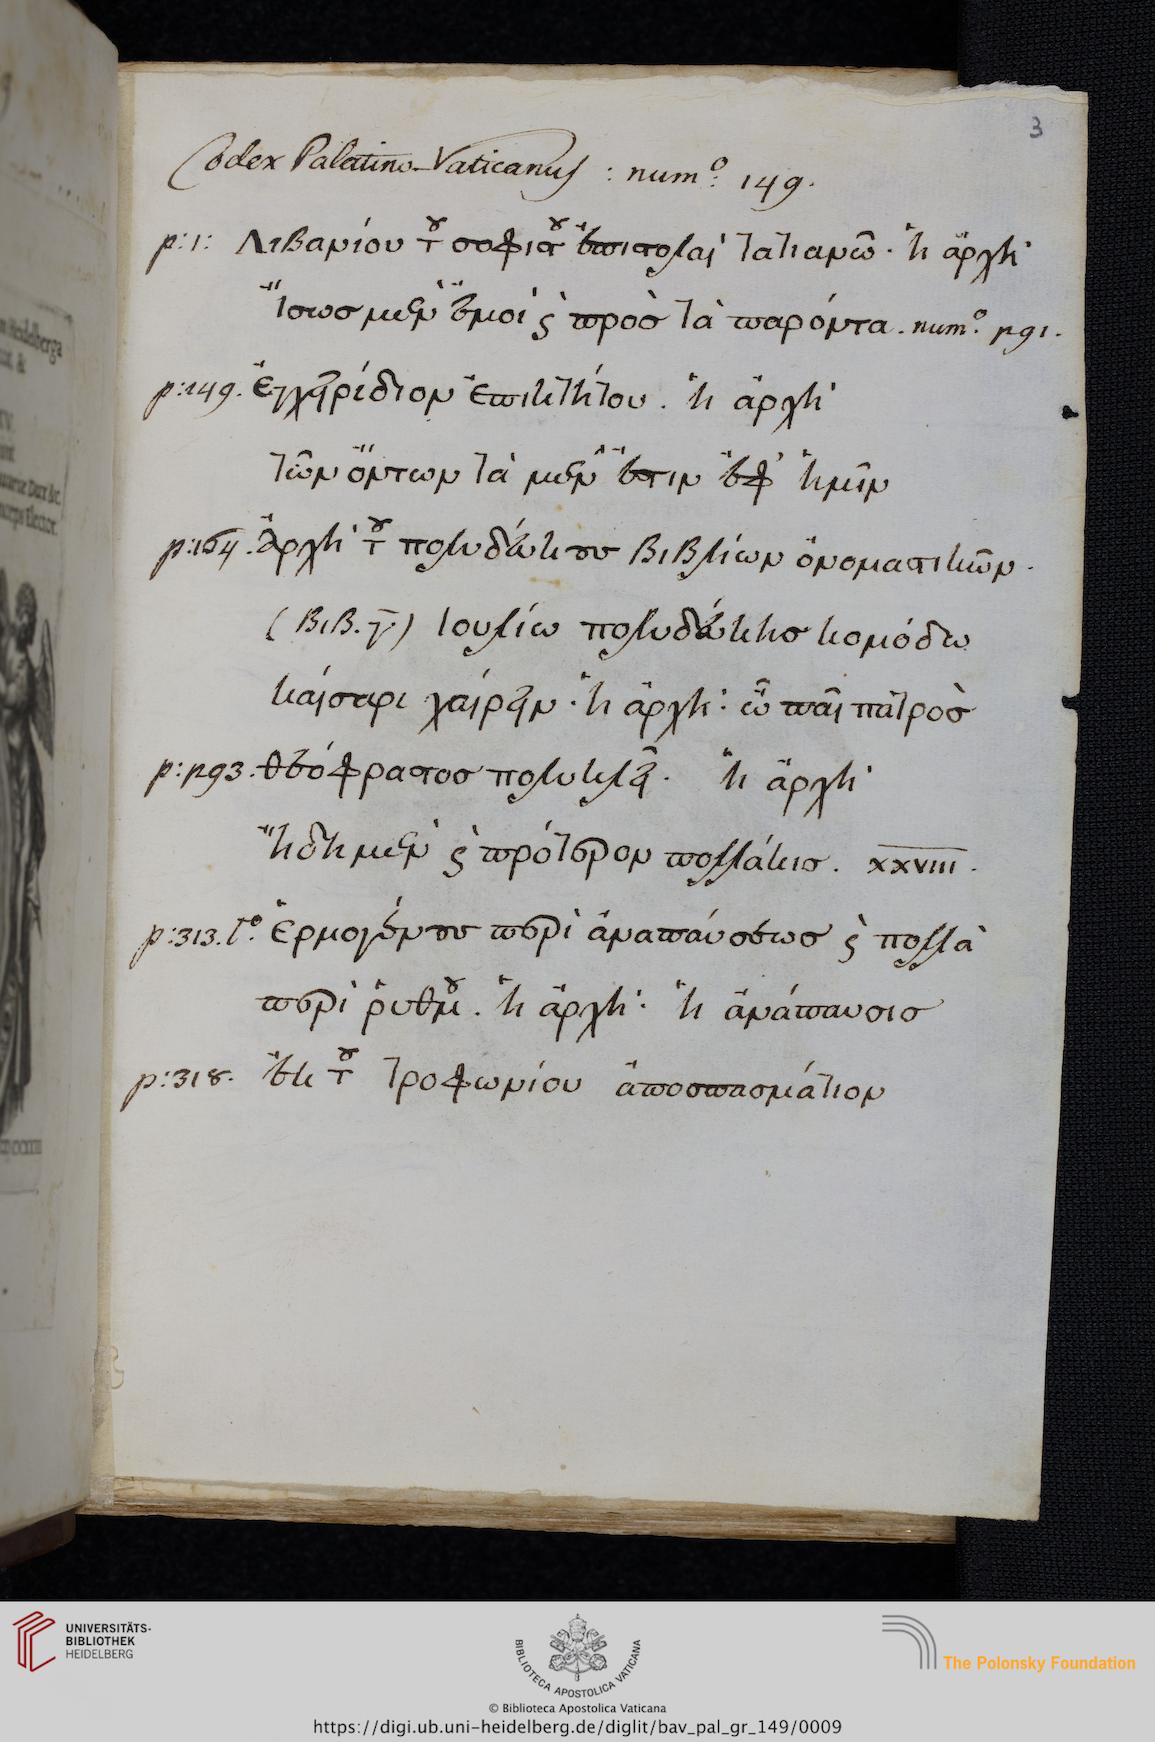 3
Codex Palatino-Vaticanus : num.o 149.
p: 1: Λιβανίου τοῦ σοφιστοῦ ἐπιστολαὶ τατιανῶ · ἡ ἀρχὴ
Ἴσως μὲν ἐμοὶ ϛ πρὸς τὰ παρόντα . num.o
p: 149. Ἐγχειρίδιον Ἐπικτήτου . ἡ ἀρχὴ
τῶν ὄντων τὰ μὲν ἐστιν ἐφ' ἡμῖν
p: 164. ἀρχὴ τοῦ πολυδεύκους βιβλίων ὀνομαστικῶν .
(βιβ. γ̄.) Ιουλίω πολυδεύκης κομόδω
καίσαρι χαίρειν · ἡ ἀρχὴ · ὦ παῖ πατρὸς
θεόφραστος πολυκλεῖ . ἡ ἀρχὴ
Ἤδη μὲν ϛ πρότερον πολλάκις . xxviii .
p: 313. Ἑρμογένους περὶ ἀναπαύσεως ϛ πολλὰ
περὶ ῥυθμοῦ . ἡ ἀρχὴ · ἡ ἀνάπαυσις
p: 318. ἐκ τοῦ τροφωνίου ἀποσπασμάτιον
UNIVERSITÄTS-
BIBLIOTHEK
HEIDELBERG
BIBLIOTECA APOSTOLICA VATICANA
The Polonsky Foundation
© Biblioteca Apostolica Vaticana
https://digi.ub.uni-heidelberg.de/diglit/bav_pal_gr_149/0009